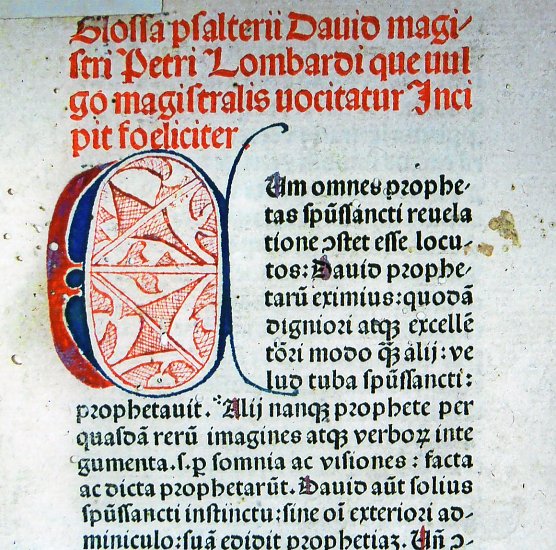 Glossa psalterii Dauid magi⸗
stri Petri Lombardi que uul
go magistralis uocitatur Inci
pit foeliciter.
CUm omnes prophe⸗
tas spūssancti reuela
tione ↄstet esse locu⸗
tos: Dauid prophe⸗
tarū eximius: quodā
digniori atqꝫ excellē
tōri modo q̄ꝫ alij: ve
lud tuba spūssancti:
prophetauit. Alij nanqꝫ prophete per
quasdā rerū imagines atqꝫ verboꝝ inte
gumenta .s. ꝑ somnia ac visiones: facta
ac dicta prophetarūt. Dauid aūt solius
spūssancti instinctu: sine oī exteriori ad⸗
miniculo: suā edidit prophetiaꝫ. Uñ ↄ⸗